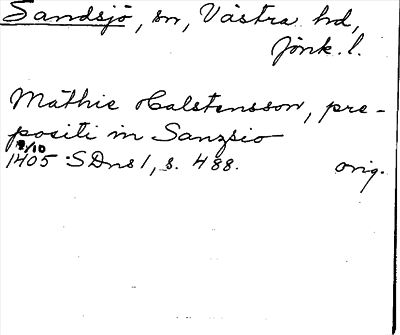 Sandsjö, sn, Västra hd,
Jönk. l.
Mathie Halstensson, pre-
positi in Sanzsio
9/10
1405 SDns 1, s. 488. orig.